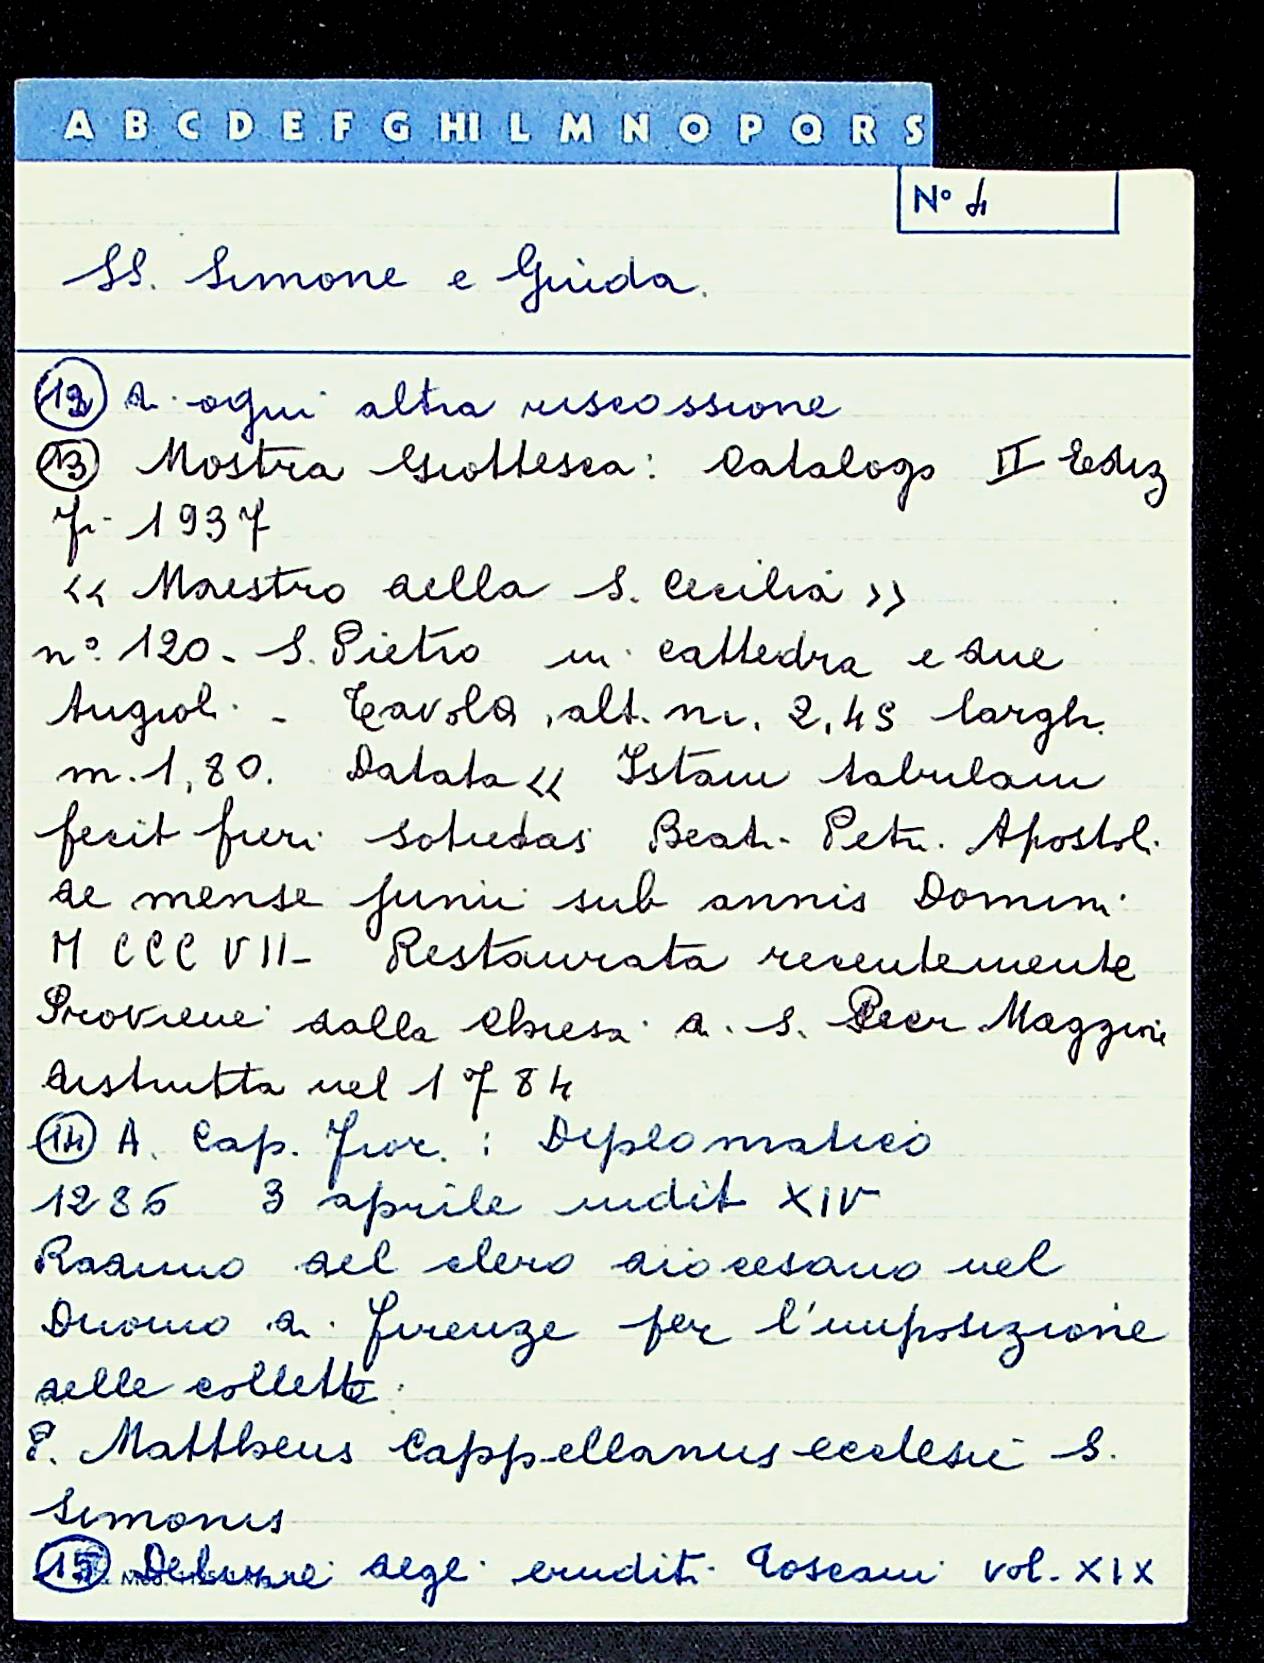 A B C D E F G HI L M N O P Q R S
Nº 4
SS. Simone e Giuda.
12 di ogni altra riscossione
13 Mostra Giottesca: Catalogo II Ediz
Fi 1937
<< Maestro della S. Cecilia >>
nº. 120 - S. Pietro in cattedra e due
Angioli - Tavola, alt. m. 2,45 largh.
m. 1,80. Datata << Istam tabulam
fecit fieri sotiedas Beati Petri Apostoli
de mense Junii sub annis Domini
MCCCVII - Restaurata recentemente
Proviene dalla Chiesa di S. Pier Maggiore
distrutta nel 1784
14 A. Cap. Fior. : Diplomatico
1286 3 aprile indit XIV
Raduno del clero diocesano nel
Duomo di Firenze per l'imposizione
delle collette.
P. Mattheus Cappellanus ecclesie S.
Simonis
15 Delizie degli eruditi Toscani vol. XIX